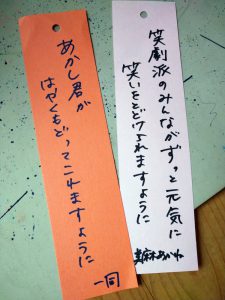 笑劇派のみんながずっと元気に
笑いをとどけられますように
あかし君が
はやくもどってこれますように
一同